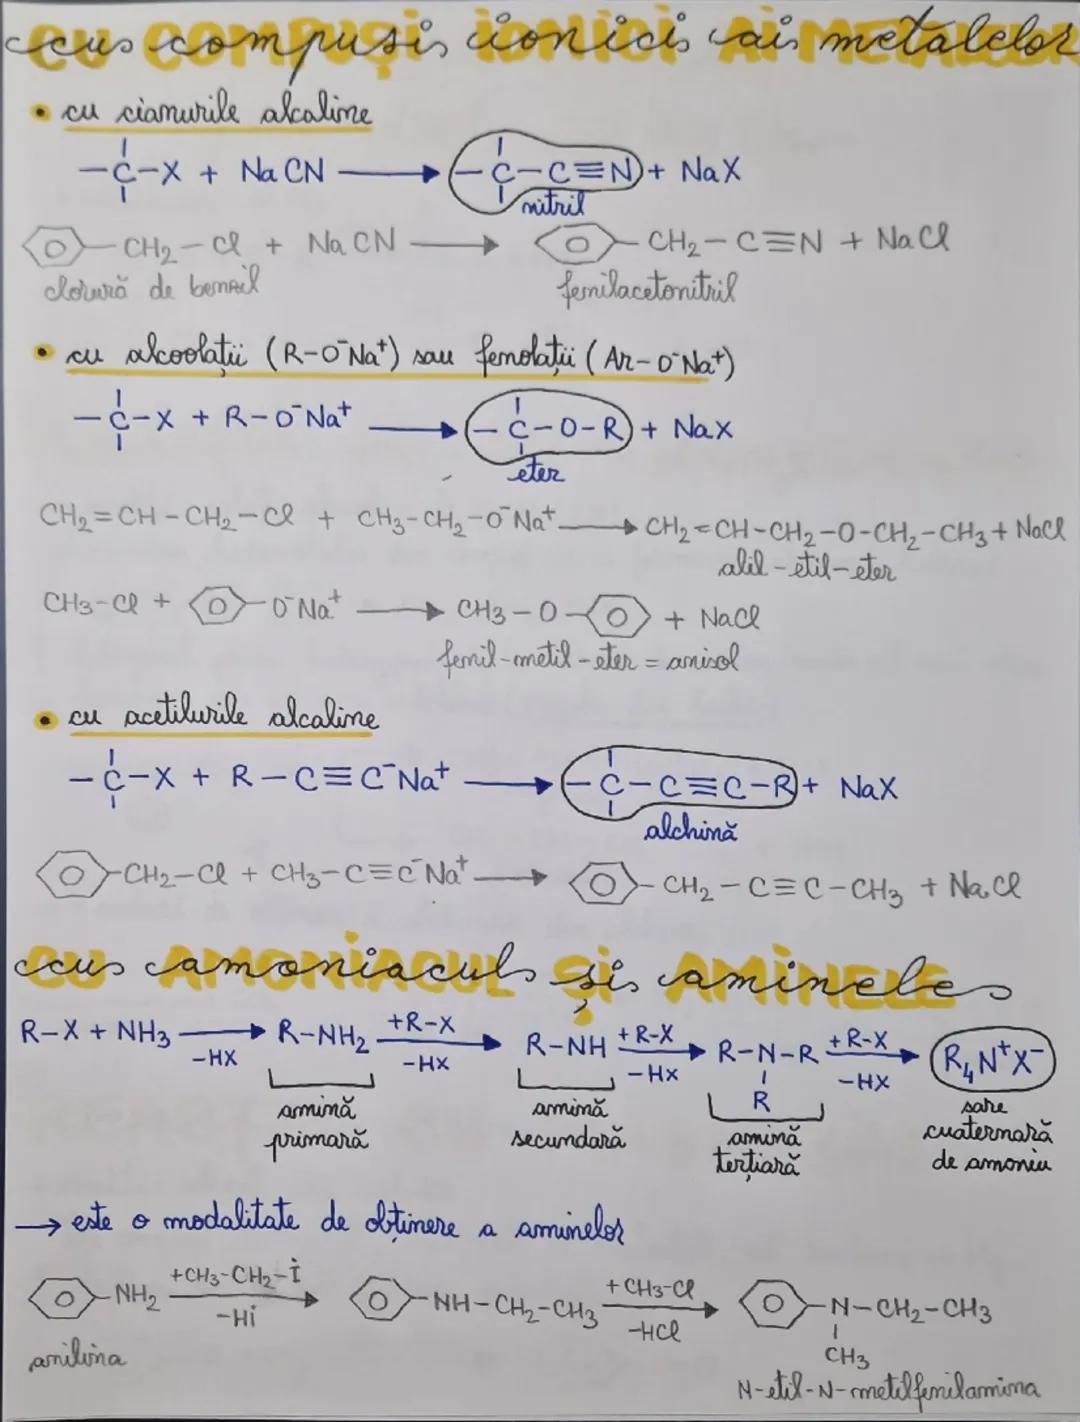 cu compuși ionici ai metalelor
• cu cianurile alcaline
–C–X + NaCN ⟶ –C–C≡N + NaX
nitril
CH₂–Cl + NaCN ⟶ CH₂–C≡N + NaCl
clorură de benzil fenilacetonitril
• cu alcoolații (R–O⁻Na⁺) sau fenolații (Ar–O⁻Na⁺)
–C–X + R–O⁻Na⁺ ⟶ –C–O–R + NaX
eter
CH₂=CH–CH₂–Cl + CH₃–CH₂–O⁻Na⁺ ⟶ CH₂=CH–CH₂–O–CH₂–CH₃ + NaCl
alil–etil–eter
CH₃–Cl + O⁻Na⁺ ⟶ CH₃–O– + NaCl
fenil–metil–eter = anisol
• cu acetilurile alcaline
–C–X + R–C≡C⁻Na⁺ ⟶ –C–C≡C–R + NaX
alchină
CH₂–Cl + CH₃–C≡C⁻Na⁺ ⟶ CH₂–C≡C–CH₃ + NaCl
cu amoniacul și aminele
R–X + NH₃ ⟶ –HX R–NH₂ +R–X ⟶ –HX R–NH +R–X ⟶ –HX R–N–R +R–X ⟶ –HX R₄N⁺X⁻
R
amină primară amină secundară amină terțiară sare cuaternară de amoniu
→ este o modalitate de obținere a aminelor
NH₂ +CH₃–CH₂–I ⟶ –HI NH–CH₂–CH₃ +CH₃–Cl ⟶ –HCl N–CH₂–CH₃
anilina CH₃
N-etil-N-metilfenilamina